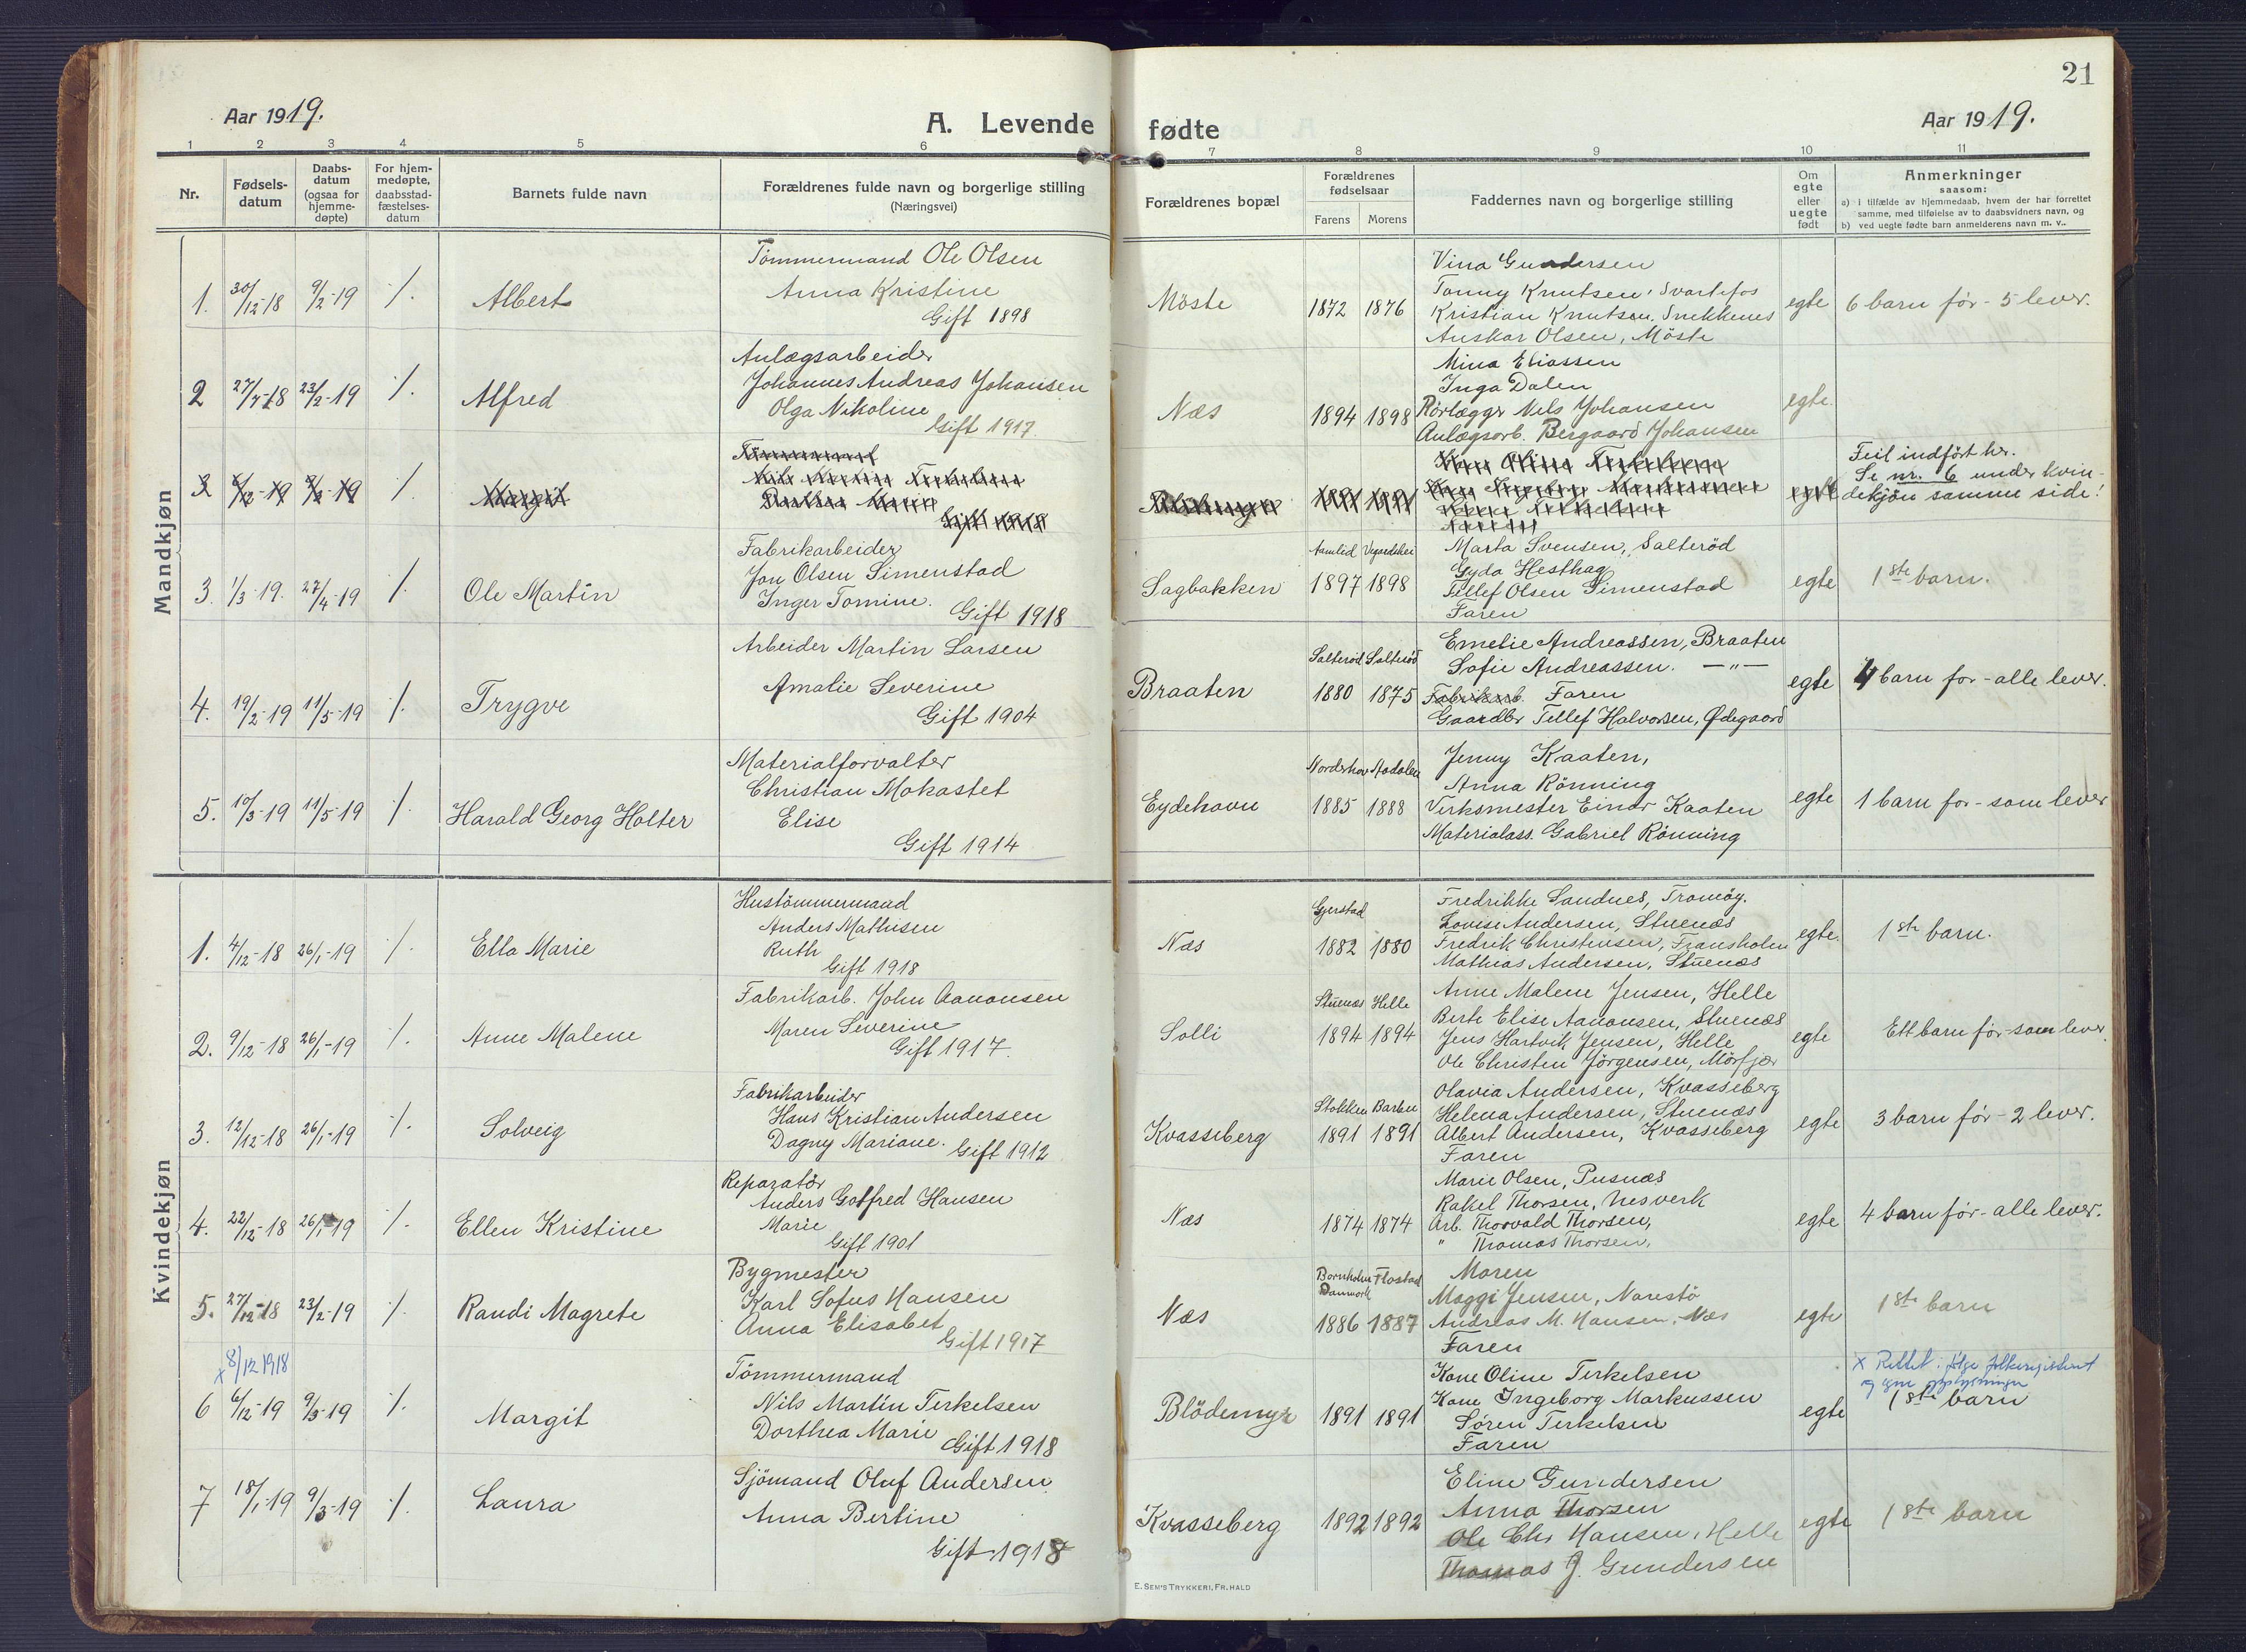 21
Aar 1919.
A. Levende fødte
Aar 1919.
1 2 3 4 5 6 7 8 9 10 11
Nr.
Fødsels-
datum
Daabs-
datum
(ogsaa for
hjemme-
døpte)
For hjem-
medøpte,
daabsstad-
fæstelses-
datum
Barnets fulde navn
Forældrenes fulde navn og borgerlige stilling
(Næringsvei)
Forældrenes bopæl
Forældrenes
fødselsaar
Farens Morens
Faddernes navn og borgerlige stilling
Om
egte
eller
uegte
født
Anmerkninger
saasom:
a) i tilfælde av hjemmedaab, hvem der har forrettet
samme, med tilføielse av to daabsvidners navn, og
b) ved uegte fødte barn anmelderens navn m. v..
Mandkjøn
1. 30/12-18 9/2-19 ·/. Albert
Tömmermand Ole Olsen
Anna Kristine
Gift 1898
Möste 1872 1876
Vina Gundersen
Tonny Knutsen, Svartefos
Kristian Knutsen, Snekkenes
Anskar Olsen, Möste
egte 6 barn før - 5 lever.
2 27/7-18 23/2-19 ·/. Alfred
Anlægsarbeider
Johannes Andreas Johansen
Olga Nikoline
Gift 1917
Næs 1894 1898
Mina Eliassen
Inga Dalen
Rörlægger Nels Johansen
Anlægsarb. Bergaard Johansen
egte.
3 6/12-19 9/3-19 ·/. Margit
Tömmermand
Nils Martin Terkelsen
Dorthea Marie
Gift 1918
Blödemyr 1891 1891
Kone Oline Terkelsen
Kone Ingeborg Markussen
Sören Terkelsen
Faren
egte
Feil indfört hr.
Se nr. 6 under kvin-
dekjön samme side!
3. 1/3-19. 27/4-19 ·/. Ole Martin
Fabrikarbeider
Jon Olsen Simenstad
Inger Tomine.
Gift 1918
Sagbakken
Aamlid Vegaardshei
1897 1898
Marta Svensen, Salteröd
Gyda Hesthag
Tellef Olsen Simenstad
Faren
egte 1ste barn.
4. 19/2-19 11/5-19 ·/. Trygve
Arbeider Martin Larsen
Amalie Severine
Gift 1904
Braaten
Salteröd Salteröd
1880 1875
Emelie Andreassen, Braaten
Sofie Andreassen. —"—
Fabrikarb. Faren
Gaardbr Tellef Halvorsen, Ødegaard
egte 4 barn før - alle lever.
5. 10/3-19 11/5-19 ·/. Harald Georg Holter
Materialforvalter
Christian Mokastet
Elise
Gift 1914
Eydehavn
Norderhov Aadalen
1885 1888
Jenny Kaaten,
Anna Rönning
Verksmester Einar Kaaten
Materialass. Gabriel Rönning
egte 1 barn før - som lever
Kvindekjøn
1. 4/12-18 26/1-19 ·/. Ella Marie
Hustömmermand
Anders Mathisen
Ruth
Gift 1918
Næs
Gjerstad
1882 1880
Fredrikke Sandnes, Tromöy.
Lovise Andersen, Stuenæs
Fredrik Christensen, Fransholen
Mathias Andersen, Stuenæs
egte. 1ste barn.
2. 9/12-18 26/1-19 ·/. Anne Malene
Fabrikarb. John Aanonsen
Maren Severine
Gift 1917.
Solli
Stuenæs Helle
1894 1894
Anne Malene Jensen, Helle
Berte Elise Aanonsen, Stuenæs
Jens Hartvik Jensen, Helle
Ole Christen Jörgensen, Mörfjær
egte Ett barn før - som lever.
3. 12/12-18 26/1-19 ·/. Solveig
Fabrikarbeider
Hans Kristian Andersen
Dagny Mariane. Gift 1912
Kvasseberg
Stokken Barbu
1891 1891
Olavia Andersen, Kvasseberg
Helena Andersen, Stuenæs
Albert Andersen, Kvasseberg
Faren
egte 3 barn før - 2 lever.
4. 22/12-18 26/1-19 ·/. Ellen Kristine
Reparatör
Anders Gotfred Hansen
Marie
Gift 1901
Næs 1874 1874
Marie Olsen, Pusnæs
Rakel Thorsen, Nesverk
Arb. Thorvald Thorsen,
" Thomas Thorsen,
egte 4 barn før - alle lever.
5. 27/12-18 23/2-19 ·/. Randi Magrete
Bygmester
Karl Sofus Hansen
Anna Elisabet
Gift 1917
Næs
Bornholm Flostad
Danmark
1886 1887
Moren
Maggi Jensen, Narestö
Andreas M. Hansen, Næs
Faren
egte 1ste barn
x 8/12 1918
6 6/12-19 9/3-19 ·/. Margit
Tömmermand
Nils Martin Terkelsen
Dorthea Marie
Gift 1918
Blödemyr 1891 1891
Kone Oline Terkelsen
Kone Ingeborg Markussen
Sören Terkelsen
Faren
egte
x Rettet i fölge folkeregisteret
og egne opplysninger
1ste barn
7 18/1-19 9/3-19 ·/. Laura
Sjömand Oluf Andersen
Anna Bertine
Gift 1918
Kvasseberg 1892 1892
Eline Gundersen
Anna Thorsen
Ole Chr Hansen, Helle
Thomas J. Gundersen
egte 1ste barn
E. SEM'S TRYKKERI, FR.HALD